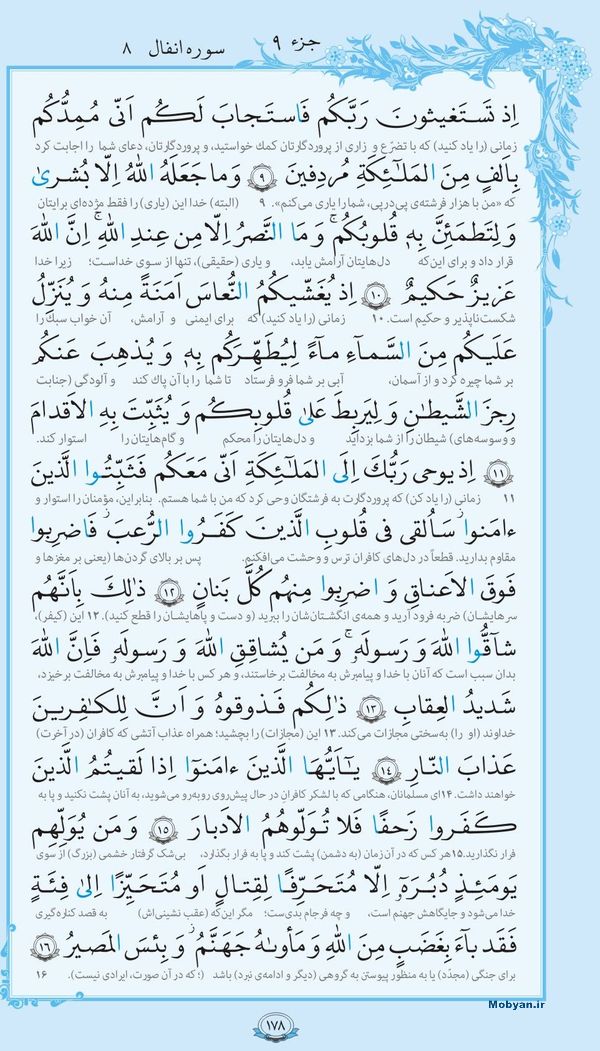 جزء ۹
سوره انفال ۸
اِذ تَستَغيثونَ رَبَّكُم فَاستَجابَ لَكُم اَنّى مُمِدُّكُم
زمانی (را یاد کنید) که با تضرّع و زاری از پروردگارتان کمک خواستید، و پروردگارتان، دعای شما را اجابت کرد
بِاَلفٍ مِنَ المَلٰئِكَةِ مُردِفينَ ۹ وَ ما جَعَلَهُ اللّٰهُ اِلّا بُشرىٰ
که «من با هزار فرشته‌ی پی‌درپی، شما را یاری می‌کنم». ۹ (البته) خدا این (یاری) را فقط مژده‌ای برایتان
وَ لِتَطمَئِنَّ بِهٖ قُلوبُكُم ۚ وَ مَا النَّصرُ اِلّا مِن عِندِ اللّٰهِ ۚ اِنَّ اللّٰهَ
قرار داد و برای این‌که دل‌هایتان آرامش یابد، و یاری (حقیقی)، تنها از سوی خداست؛ زیرا خدا
عَزيزٌ حَكيمٌ ۱۰ اِذ يُغَشّيكُمُ النُّعاسَ اَمَنَةً مِنهُ وَ يُنَزِّلُ
شکست‌ناپذیر و حکیم است. ۱۰ زمانی (را یاد کنید) که برای ایمنی و آرامش، آن خواب سبک را
عَلَيكُم مِنَ السَّماءِ ماءً لِيُطَهِّرَكُم بِهٖ وَ يُذهِبَ عَنكُم
بر شما چیره کرد و از آسمان، آبی بر شما فرو فرستاد تا شما را با آن پاک کند و آلودگی (جنابت
رِجزَ الشَّيطٰنِ وَ لِيَربِطَ عَلىٰ قُلوبِكُم وَ يُثَبِّتَ بِهِ الاَقدامَ
و وسوسه‌های) شیطان را از شما بزداید و دل‌هایتان را محکم و گام‌هایتان را استوار کند.
۱۱ اِذ يوحى رَبُّكَ اِلَى المَلٰئِكَةِ اَنّى مَعَكُم فَثَبِّتُوا الَّذينَ
۱۱ زمانی (را یاد کن) که پروردگارت به فرشتگان وحی کرد که من با شما هستم. بنابراین، مؤمنان را استوار و
ءامَنوا ۚ سَاُلقى فى قُلوبِ الَّذينَ كَفَرُوا الرُّعبَ فَاضرِبوا
مقاوم بدارید. قطعاً در دل‌های کافران ترس و وحشت می‌افکنم. پس بر بالای گردن‌ها (یعنی بر مغزها و
فَوقَ الاَعناقِ وَ اضرِبوا مِنهُم كُلَّ بَنانٍ ۱۲ ذٰلِكَ بِاَنَّهُم
سرهایشان) ضربه فرود آرید و همه‌ی انگشت‌شان را ببرید (و دست و پاهایشان را قطع کنید). ۱۲ این (کیفر)،
شاقُّوا اللّٰهَ وَ رَسولَهٗ ۚ وَ مَن يُشاقِقِ اللّٰهَ وَ رَسولَهٗ فَاِنَّ اللّٰهَ
بدان سبب است که آنان با خدا و پیامبرش به مخالفت برخاستند، و هر کس با خدا و پیامبرش به مخالفت برخیزد،
شَديدُ العِقابِ ۱۳ ذٰلِكُم فَذوقوهُ وَ اَنَّ لِلكٰفِرينَ
خداوند (او را) به‌سختی مجازات می‌کند. ۱۳ این (مجازات) را بچشید؛ همراه عذاب آتشی که کافران (در آخرت)
عَذابَ النّارِ ۱۴ يٰاَيُّهَا الَّذينَ ءامَنوا اِذا لَقيتُمُ الَّذينَ
خواهند داشت. ۱۴ ای مسلمانان، هنگامی که با لشکر کافران در حال پیش‌روی روبه‌رو می‌شوید، به آنان پشت نکنید و پا به
كَفَروا زَحفًا فَلا تُوَلّوهُمُ الاَدبارَ ۱۵ وَ مَن يُوَلِّهِم
فرار نگذارید. ۱۵ هر کس که در آن زمان (به دشمن) پشت کند و پا به فرار بگذارد، بی‌شک گرفتار خشمی (بزرگ) از سوی
يَومَئِذٍ دُبُرَهٗ اِلّا مُتَحَرِّفًا لِقِتالٍ اَو مُتَحَيِّزًا اِلىٰ فِئَةٍ
خدا می‌شود و جایگاهش جهنم است، و چه فرجام بدی‌ست؛ مگر این‌که (عقب نشینی‌اش) به قصد کناره‌گیری
فَقَد باءَ بِغَضَبٍ مِنَ اللّٰهِ وَ مَأوىٰهُ جَهَنَّمُ ۖ وَ بِئسَ المَصيرُ ۱۶
برای جنگی (مجدّد) یا به منظور پیوستن به گروهی (دیگر و ادامه‌ی نبرد) باشد (؛ که در آن صورت، ایرادی نیست). ۱۶
۱۷۸
Mobyan.ir